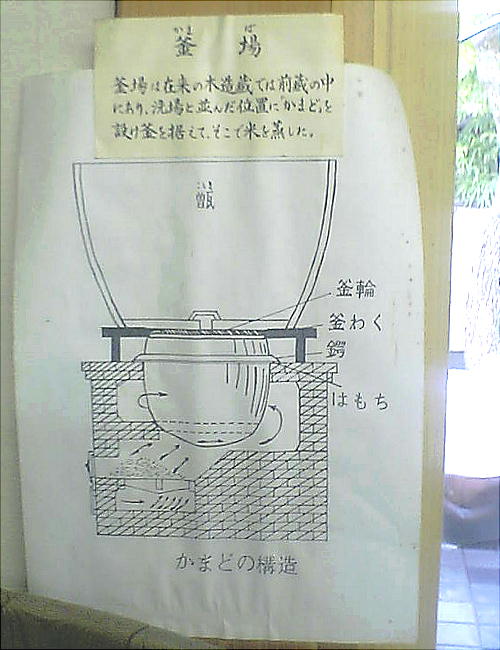 かま ば
釜場
釜場は在来の木造蔵では前蔵の中
にあり、洗場と並んだ位置に"かまど"を
設け釜を据えて、そこで米を蒸した。
こしき
甑
釜輪
釜わく
鍔
はもち
かまどの構造